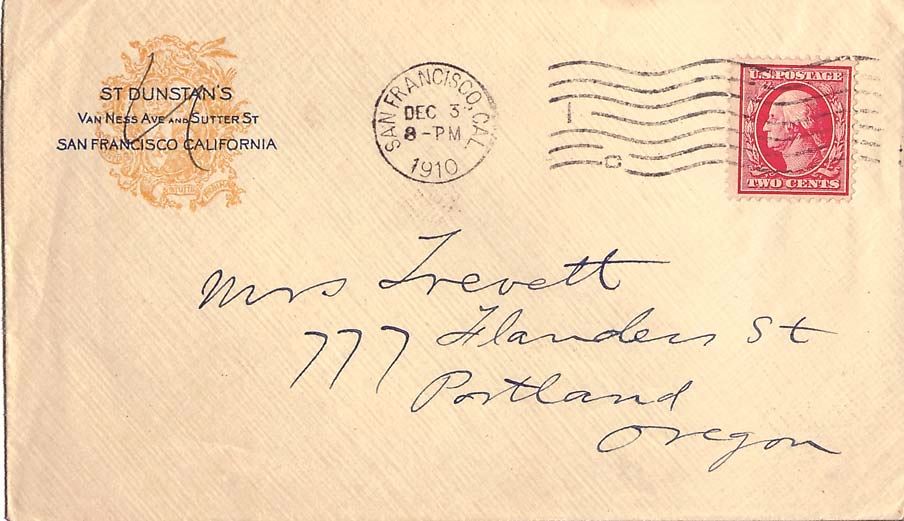 ST DUNSTAN'S
VAN NESS AVE AND SUTTER ST
SAN FRANCISCO CALIFORNIA
SAN FRANCISCO, CAL.
DEC 3
8-PM
1910
U.S. POSTAGE
TWO CENTS
Mrs Trevett
777 Flanders St
Portland
Oregon